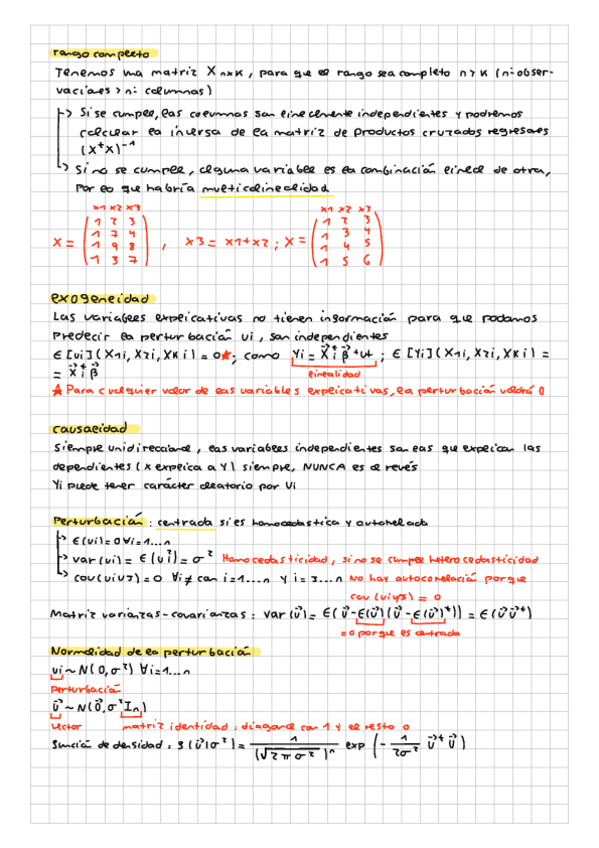 rango completo
Tenemos una matriz Xnxk, para que el rango sea completo n>k (nº obser-
vaciones > nº columnas)
↳ Si se cumple, las columnas son linealmente independientes y podremos
calcular la inversa de la matriz de productos cruzados regresores
(X^tX)^-1
↳ Si no se cumple, alguna variable es la combinación lineal de otra,
por lo que habría multicolinealidad
x1 x2 x3 x1 x2 x3
1 2 3 1 2 3
1 7 4 1 3 4
X = , x3 = x1+x2 ; X =
1 9 8 1 4 5
1 3 7 1 5 6
exogeneidad
Las variables explicativas no tienen información para que podamos
predecir la perturbación ui, son independientes
E[ui](X1i, X2i, XKi) = 0★; como Yi = X⃗i^t β⃗ + ut ; E[Yi](X1i, X2i, XKi) =
= X⃗i^t β⃗
linealidad
★ Para cualquier valor de las variables explicativas, la perturbación valdrá 0
causalidad
Siempre unidireccional, las variables independientes son las que explican las
dependientes (X explica a Y) siempre, NUNCA es al revés
Yi puede tener carácter aleatorio por Ui
Perturbación: centrada si es homocedastica y
↳ E(ui)=0 ∀i=1...n
↳ var(ui) = E(ui²) = σ² Homocedasticidad, si no se cumple heterocedasticidad
↳ cov(uiuj) = 0 ∀i≠ con i=1...n y i=j...n No hay autocorrelación porque
cov(uiyj) = 0
Matriz varianzas-covarianzas: Var(u⃗) = E(u⃗-E(u⃗)(u⃗-E(u⃗)^t)) = E(u⃗u⃗^t)
=0 porque es centrada
Normalidad de la perturbación
ui ~ N(0,σ²) ∀i=1...n
perturbación
u⃗ ~ N(0⃗,σ²In)
vector matriz identidad: diagonal con 1 y el resto 0
Función de densidad: f(u⃗|σ²) = 1/(√2πσ²)^n exp(-1/2σ² u⃗^t u⃗)